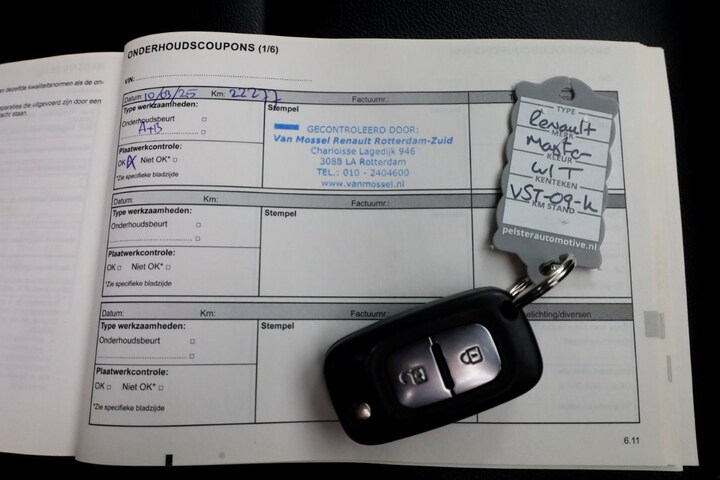 n dezelfde kwaliteitsnormen als de on-
paraties die uitgevoerd zijn door een
acht staan.
ONDERHOUDSCOUPONS (1/6)
VIN:
Datum: 10/03/25 Km: 22277 Factuurnr.:
Type werkzaamheden:
Onderhoudsbeurt
A+B
Stempel
GECONTROLEERD DOOR:
Van Mossel Renault Rotterdam-Zuid
Charloisse Lagedijk 946
3088 LA Rotterdam
TEL.: 010 - 2404600
www.vanmossel.nl
Plaatwerkcontrole:
OK X Niet OK*
*Zie specifieke bladzijde
Datum: Km: Factuurnr.:
Type werkzaamheden:
Onderhoudsbeurt
Stempel
Plaatwerkcontrole:
OK Niet OK*
*Zie specifieke bladzijde
Datum: Km: Factuurnr.: elichting/diversen
Type werkzaamheden:
Onderhoudsbeurt
Stempel
Plaatwerkcontrole:
OK Niet OK*
*Zie specifieke bladzijde
6.11
TYPE
Renault
MERK
Master
KLEUR
WIT
KENTEKEN
VST-09-K
KM STAND
pelsterautomotive.nl